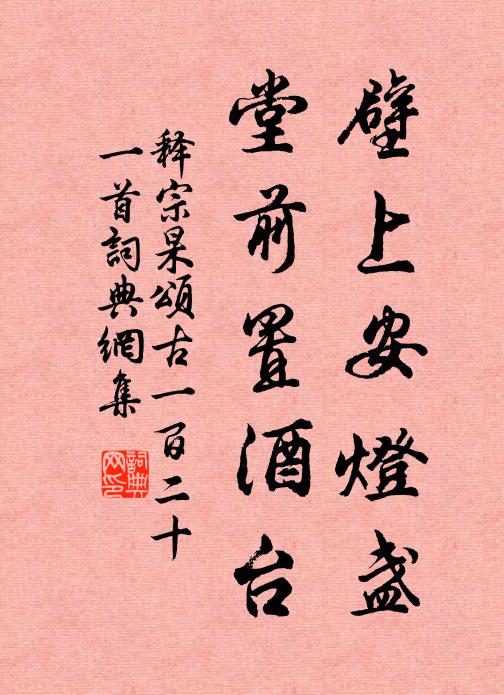 壁上安燈盏
堂前置酒台
释宗杲頌古一百二十
一首詞典網集
詞典
网印